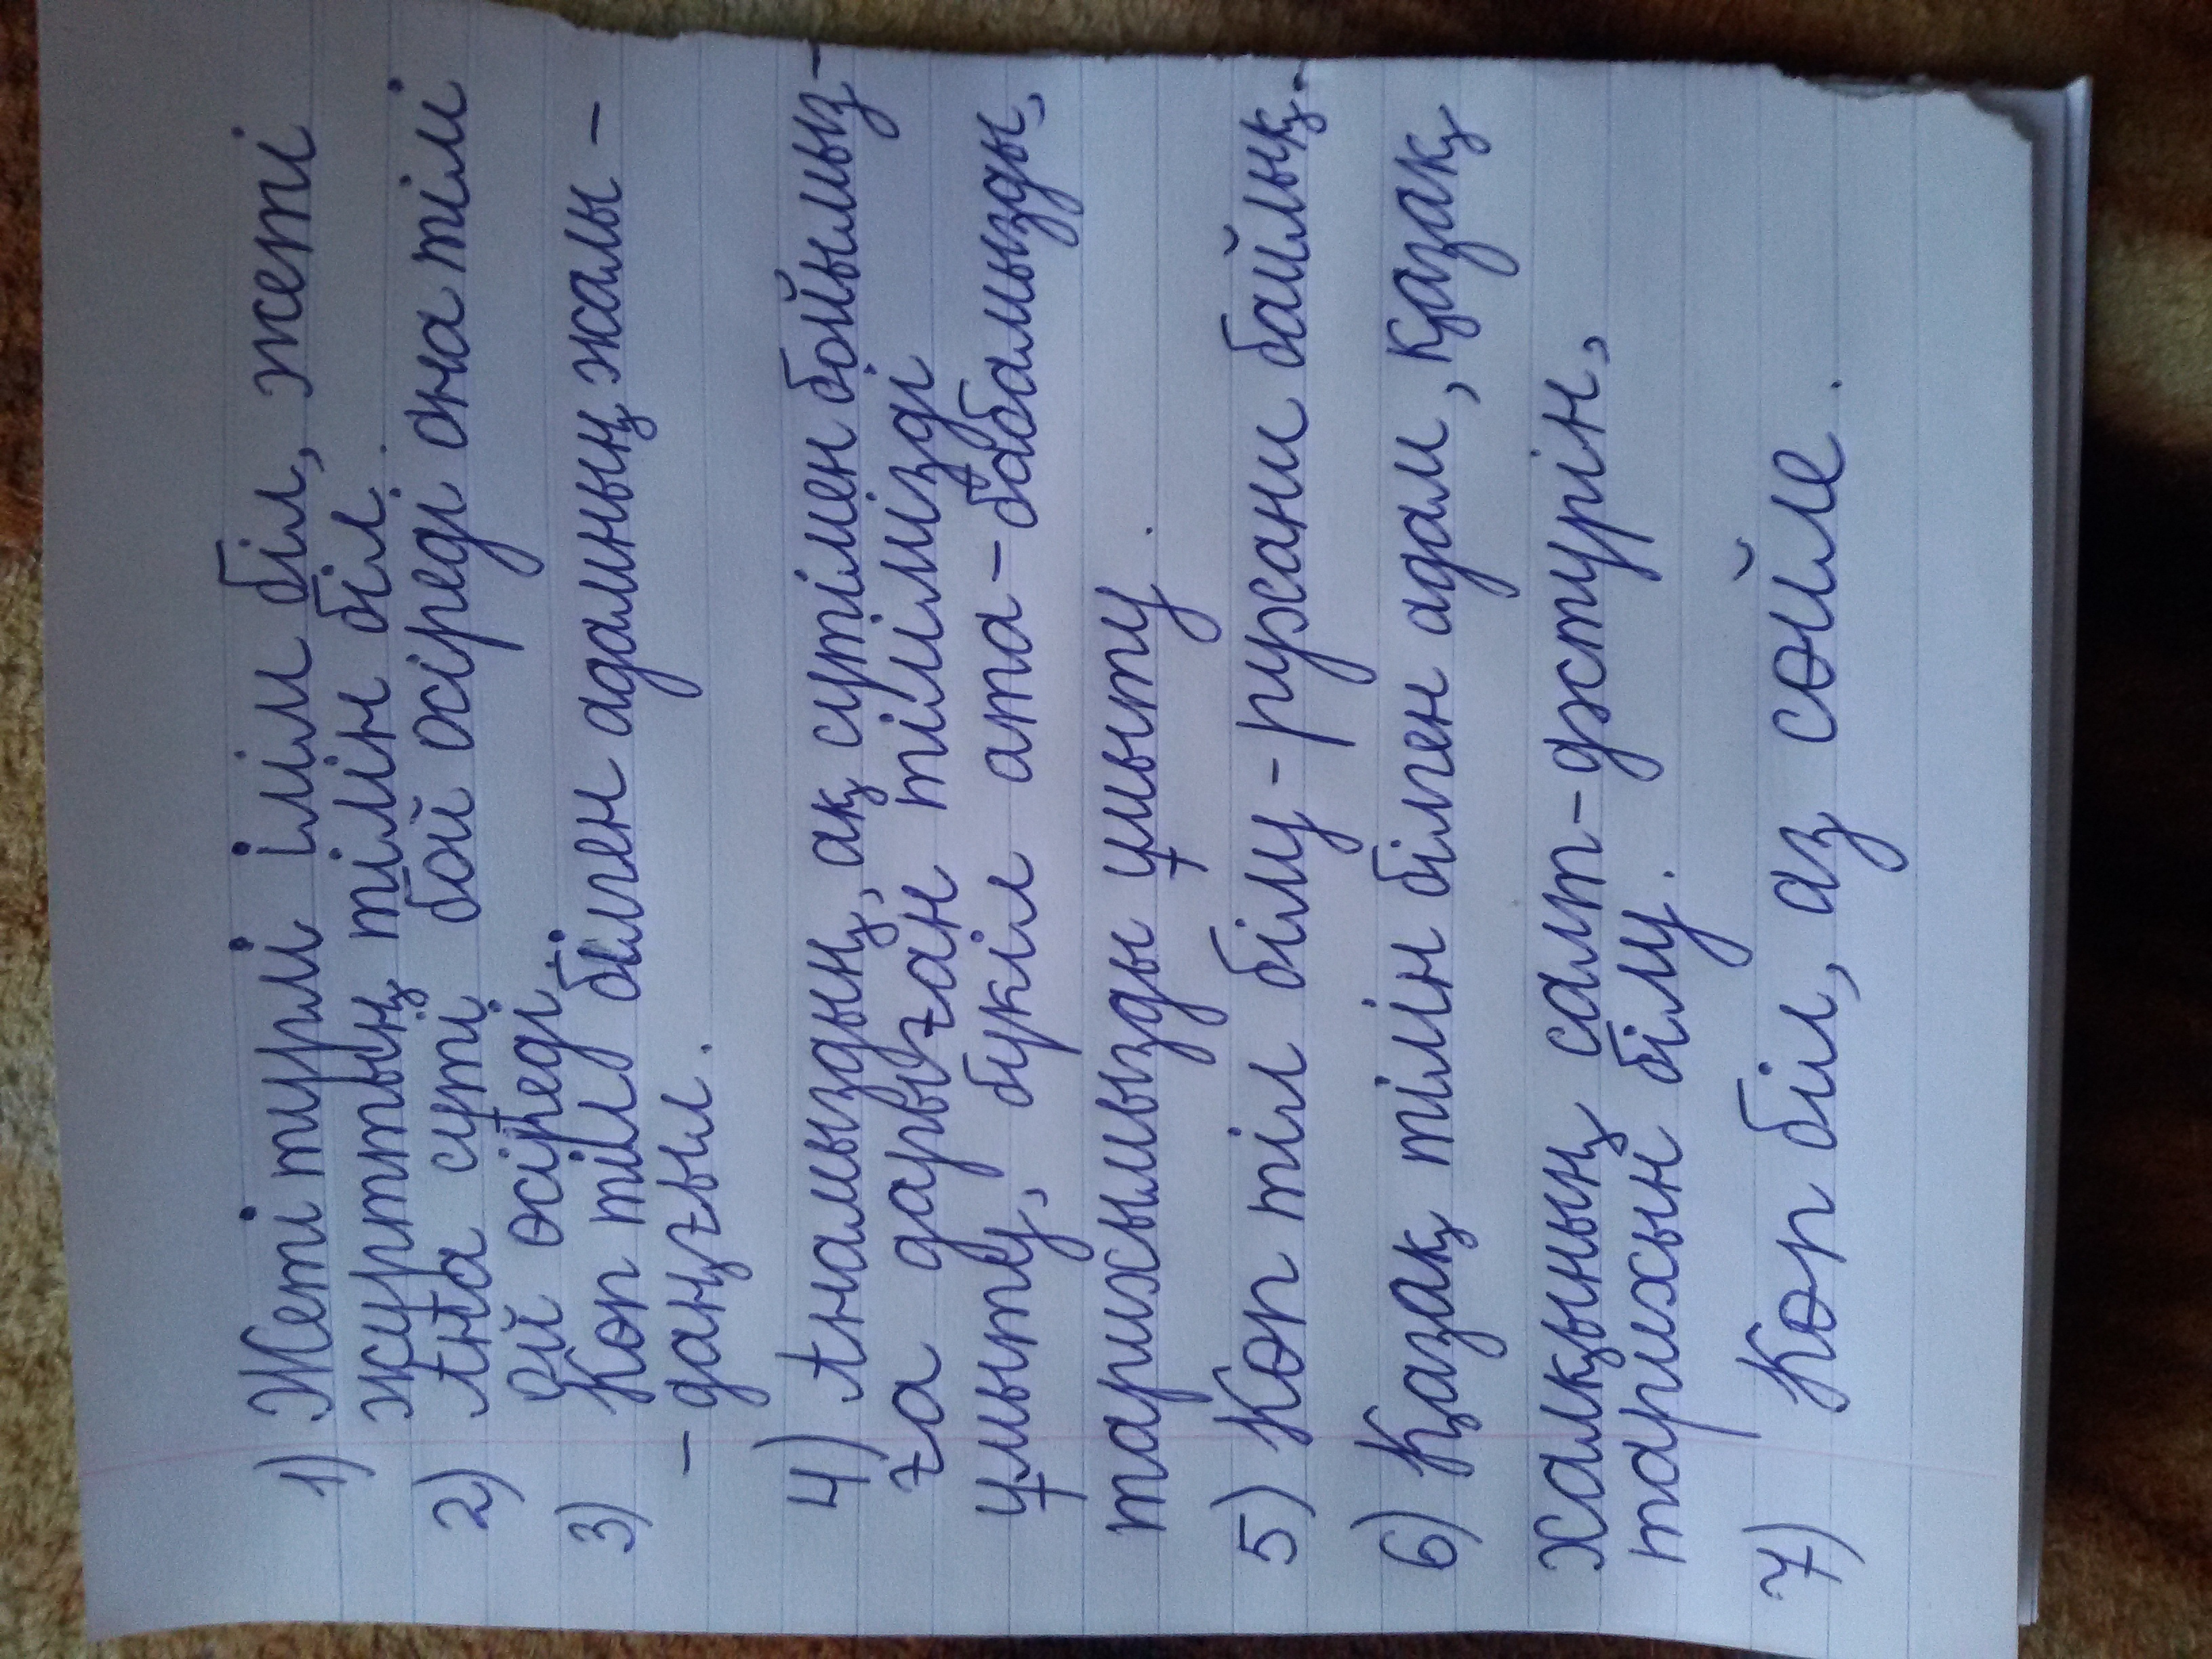 1) Жеті түрлі ілім біл, жеті
жұрттың тілін біл.
2) Ана сүті бой өсіреді ана тілі
ой өсіреді.
3) Көп тіл білген адамның жалы -
- даңғыл.
4) Анамыздың, ақ сүтімен бойымыз-
ға дарыған тілімізді
ұмыту, бүкіл ата-бабамызды,
тарихымызды ұмыту.
5) Көп тіл білу-рухани байлық.
6) Қазақ тілін білген адам, қазақ
халқының салт-дәстүрін,
тарихын білу.
7) Көп біл, аз сөйле.